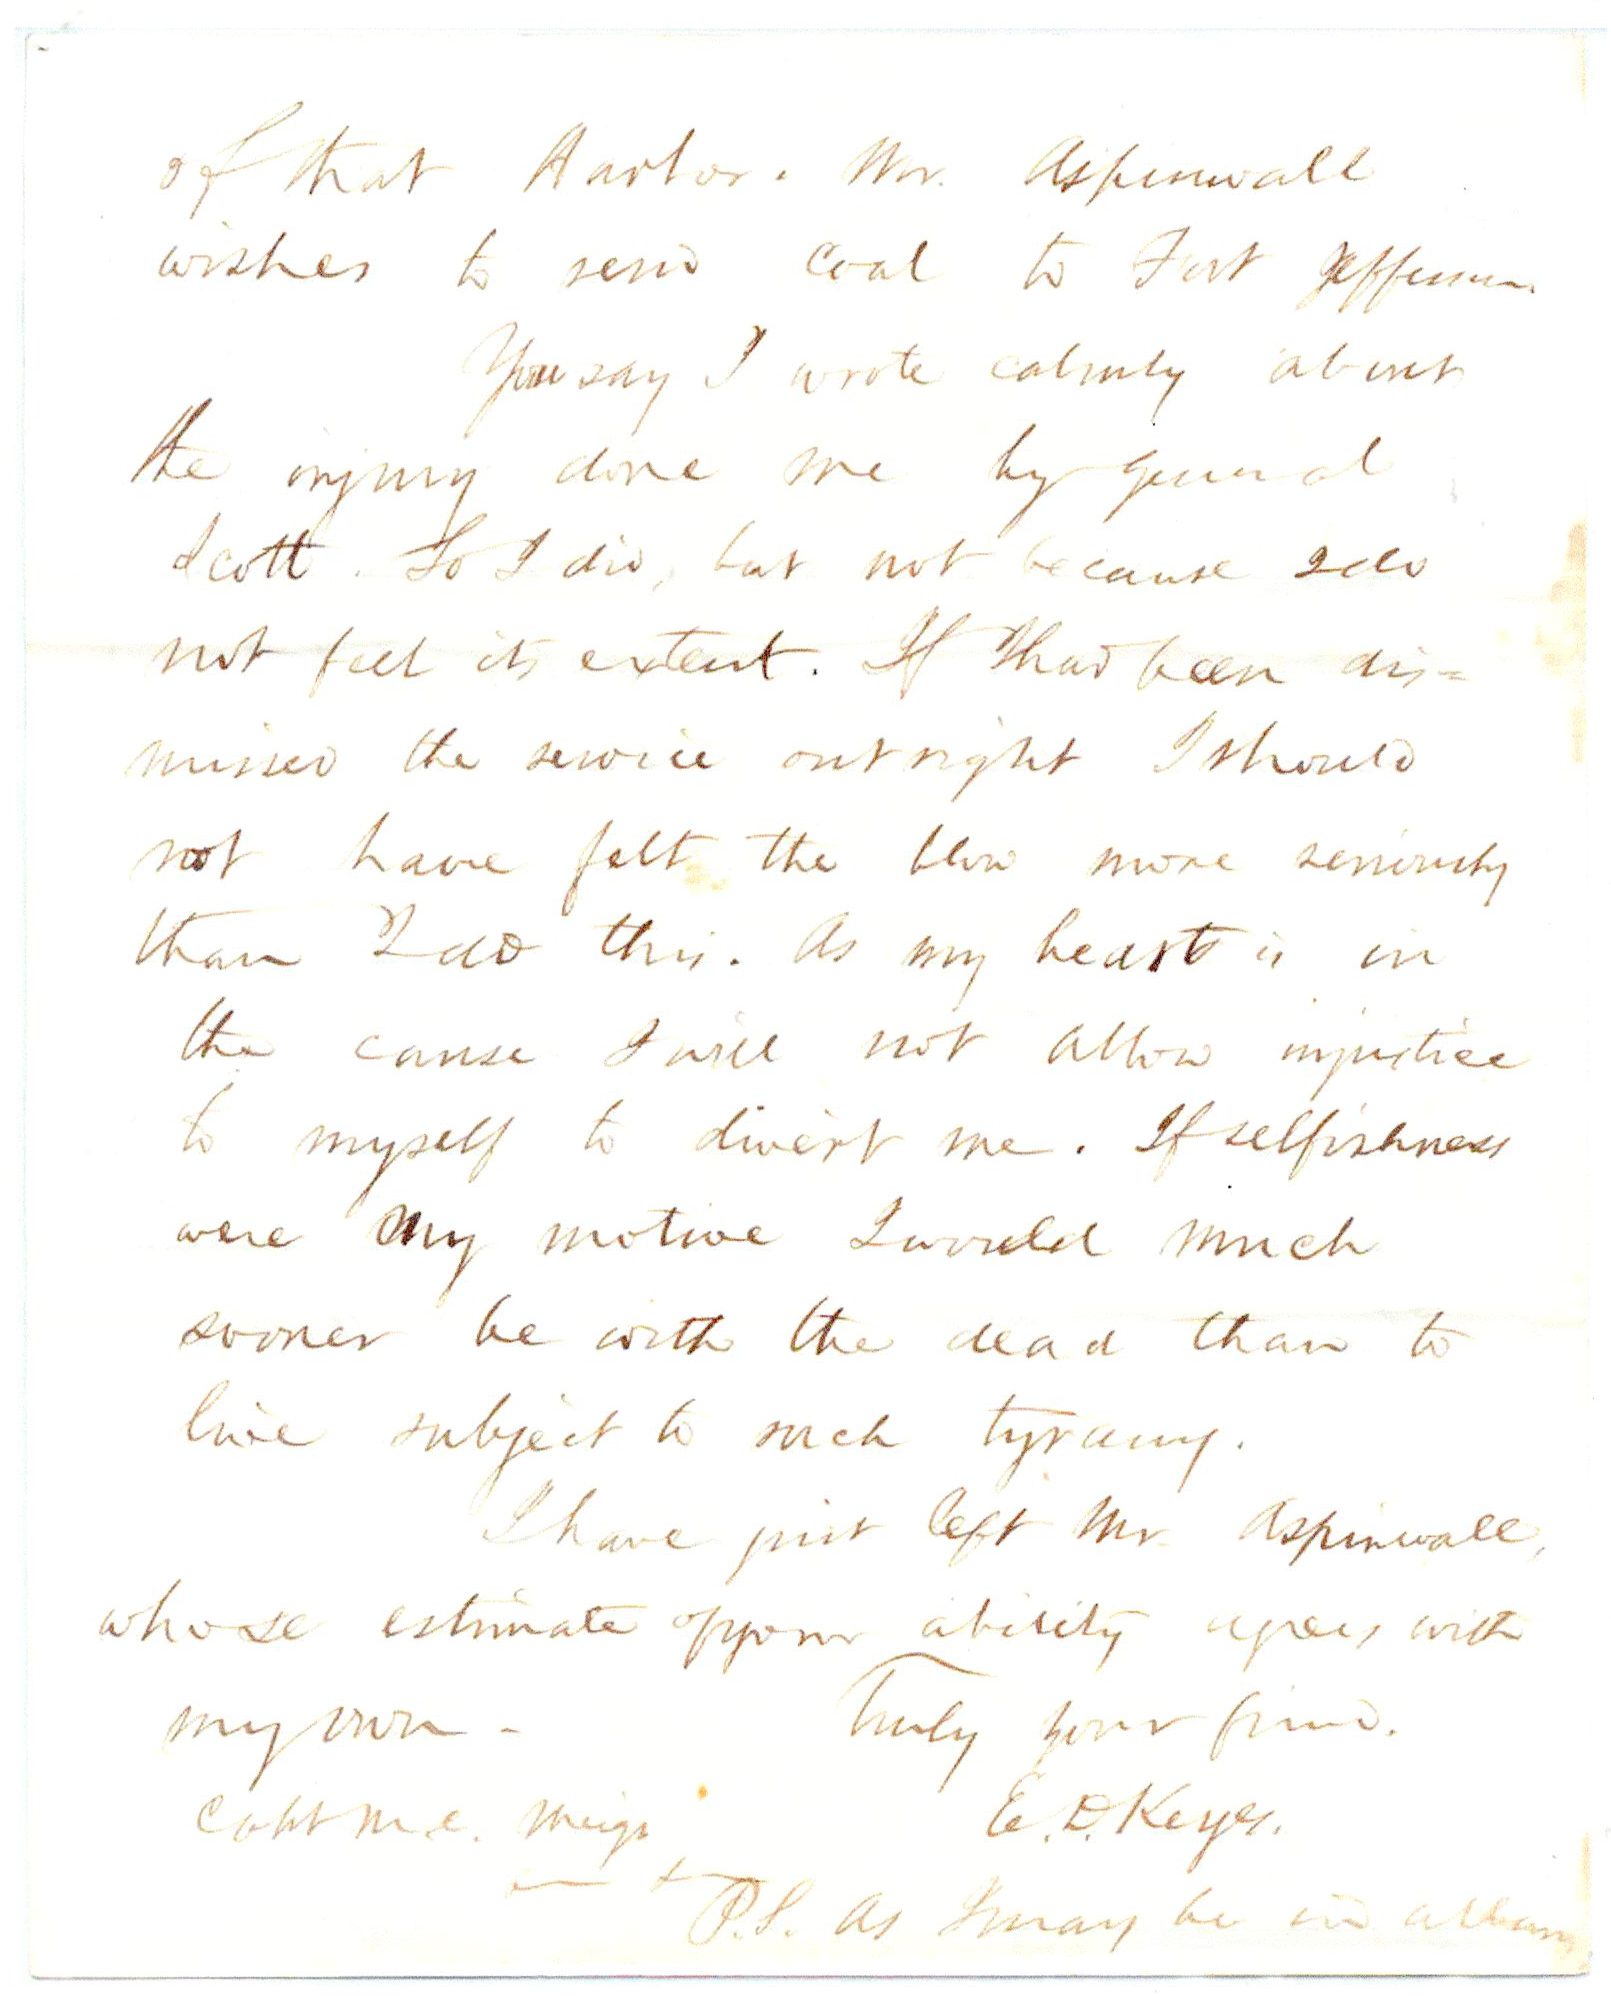 of that Harbor. Mr. Aspinwall
wishes to send coal to Fort Jefferson.
You say I wrote calmly about
the injury done me by General
Scott. So I did, but not because I do
not feel its extent. If I had been dis=
missed the service outright I should
not have felt the blow more seriously
than I do this. As my heart is in
the cause I will not allow injustice
to myself to divert me. If selfishness
were my motive I would much
sooner be with the dead than to
live subject to such tyranny.
I have just left Mr. Aspinwall,
whose estimate of your ability agrees with
my own - Truly your friend.
Capt M. C. Meigs E. D. Keyes.
P.S. As I may be in Albany